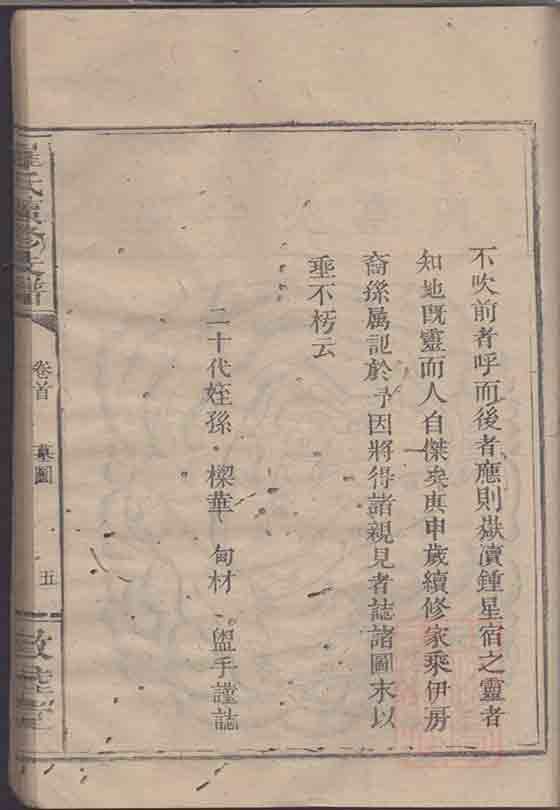 不吹前者呼而後者應則嶽瀆鍾星宿之靈者
知地既靈而人自傑矣庚申歲續修家乘伊房
裔孫属記於予因將得諸親見者誌諸圖末以
垂不朽云
二十代姪孫 樑華 甸材 盥手謹誌
氏續修支譜
卷首
墓圖
五
敦
堂